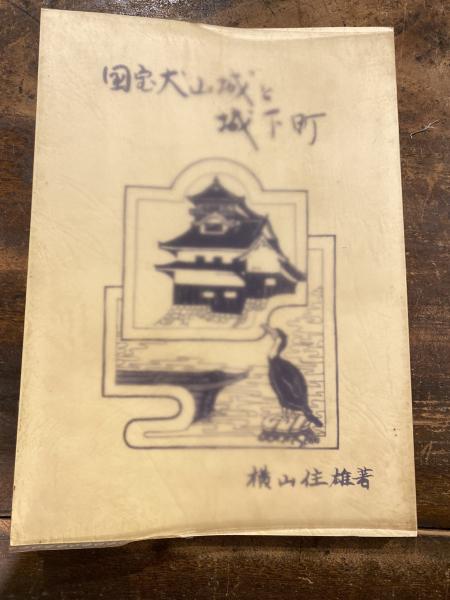 国宝犬山城と
城下町
横山住雄著